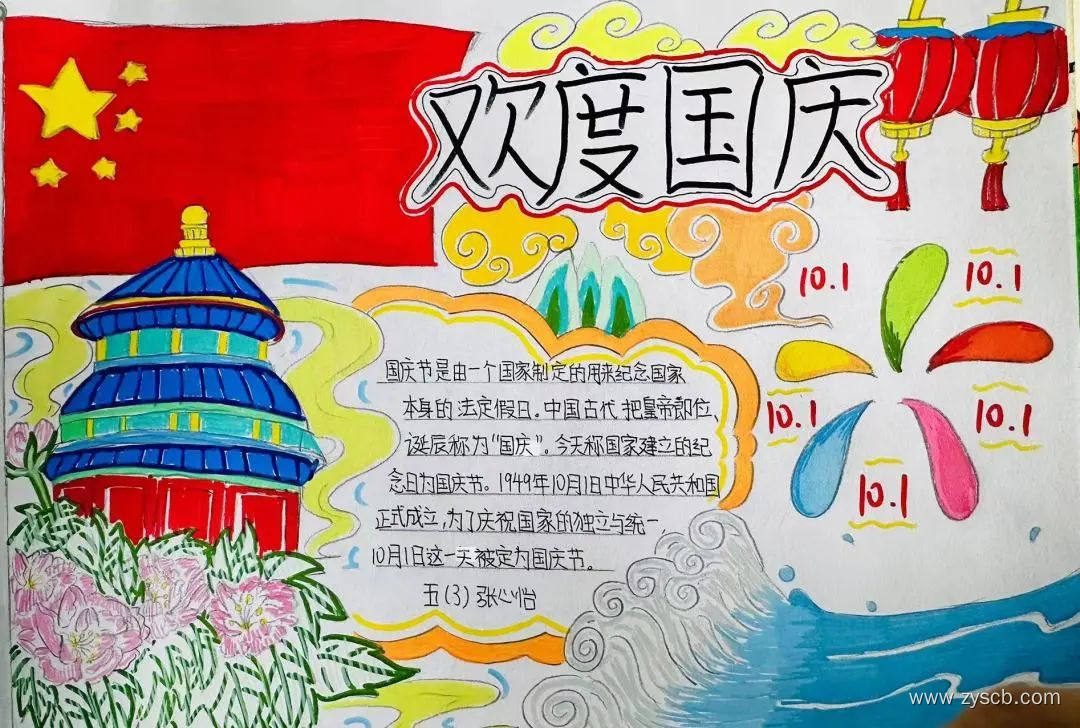 欢度国庆
10.1
10.1
10.1
10.1
10.1
国庆节是由一个国家制定的用来纪念国家
本身的法定假日。中国古代把皇帝即位、
诞辰称为“国庆”。今天称国家建立的纪
念日为国庆节。1949年10月1日中华人民共和国
正式成立,为了庆祝国家的独立与统一,
10月1日这一天被定为国庆节。
五(3)张心怡
www.zyscb.com